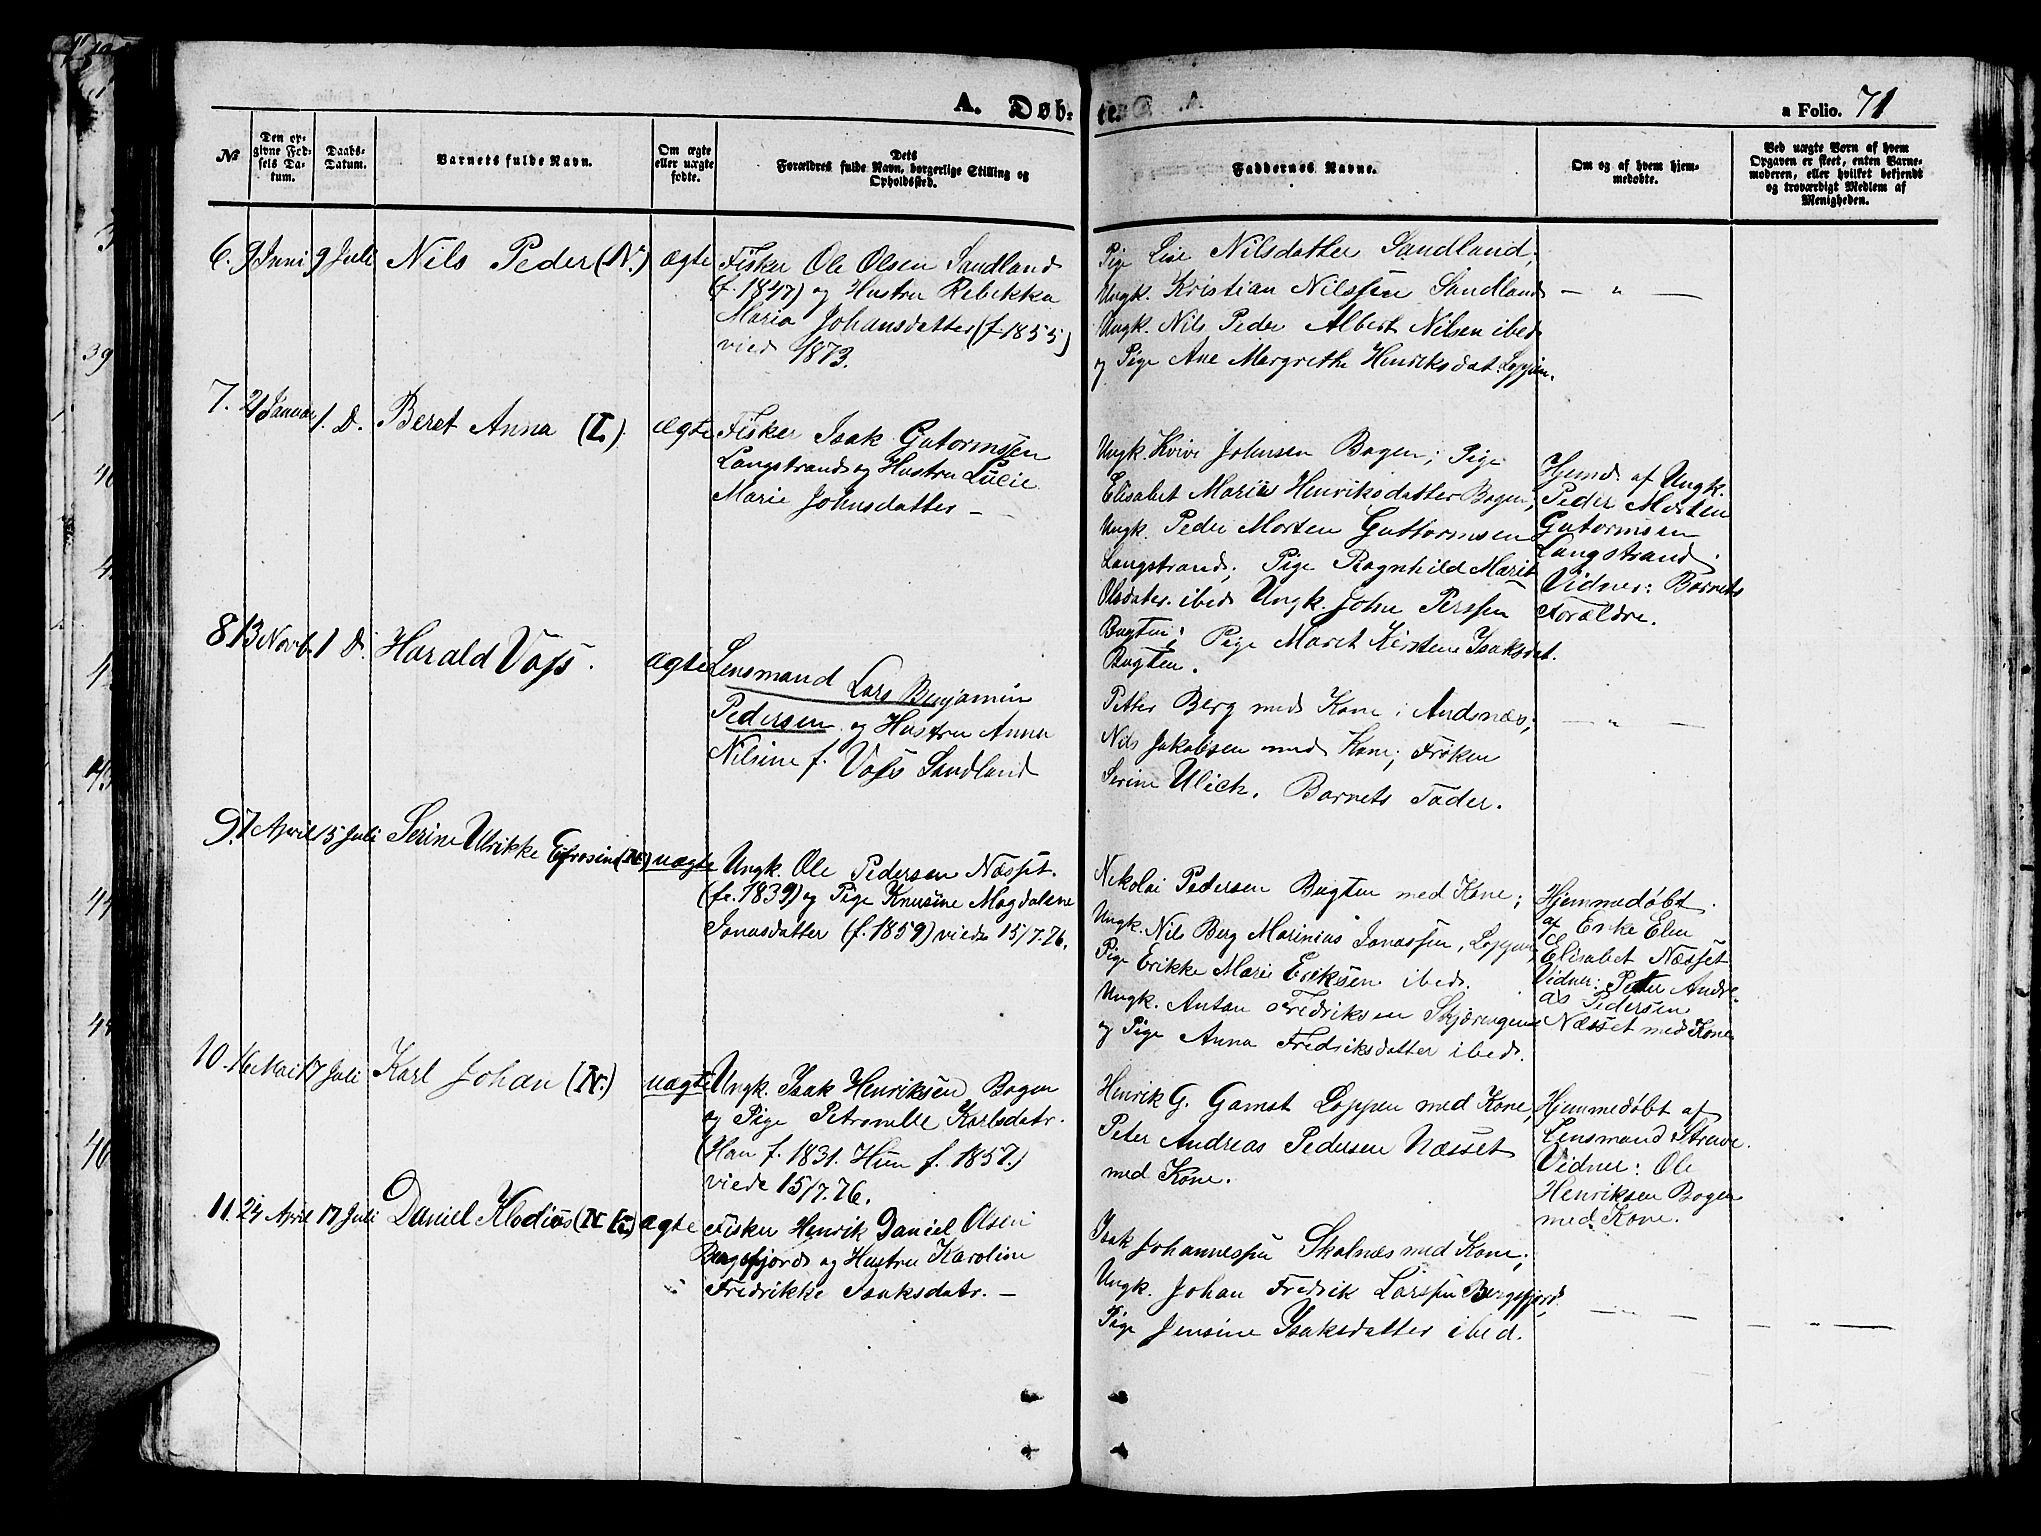 A. Døbte.
a Folio. 71
No
Den opgivne Fødsels Datum.
Daabs-Datum.
Barnets fulde Navn.
Om ægte eller uægte fødte.
Dets Forældres fulde Navn, borgerlige Stilling og Opholdssted.
Faddernes Navne.
Om og af hvem hjemmedøbte.
Ved uægte Børn af hvem Opgaven er skeet, enten Barnemoderen, eller hvilket bekjendt og troværdigt Medlem af Menigheden.
6. 9 Juni 9 Juli Nils Peder (N.) ægte
Fisker Ole Olsen Sandland
(f. 1847) og Hustru Rebekka
Maria Johansdatter (f. 1855)
vied 1873.
Pige Lise Nilsdatter Sandland;
Ungk. Kristian Nilssen Sandland
Ungk. Nils Peder Albert Nilsen ibed
og Pige Ane Margrethe Henriksdat. Loppen.
— " —
7. 21 Januar 1. D. Beret Anna (L.) ægte
Fisker Isak Gutormssen
Langstrand og Hustru Lucie
Marie Johnsdatter —
Ungk. Kvive Johnsen Bogen; Pige
Elisabet Marie Henriksdatter Bogen;
Ungk. Peder Morten Guttormsen
Langstrand; Pige Ragnhild Marit
Olsdater. ibed Ungk. John Perssen
Bugten; Pige Maret Kirstene Isaksdat.
Bugten.
Hjemd. af Ungk.
Peder Morten
Gutormsen
Langstrand.
Vidner: Barnets
Forældre.
8 13 Novb. 1 D. Harald Voss. ægte
Lensmand Lars Benjamin
Pedersen og Hustru Anna
Nilsine f. Voss Sandland
Petter Berg med Kone i Andsnæs;
Nils Jakobsen med Kone; Frøken
Serine Ulich. Barnets Fader.
— " —
9. 7 April 15 Juli Serine Ulrikke Efrosine (N) uægte
Ungk. Ole Pedersen Næsset.
(fø. 1839) og Pige Knusine Magdalene
Jonasdatter (f. 1859) viede 15/7. 76.
Nikolai Pedersen Bugten med Kone;
Ungk. Nils Berg Marinius Jonassen, Loppen,
Pige Erikke Marie Eriksen ibed.
Ungk. Anton Fredriksen Skjærvengene
og Pige Anna Fredriksdatter ibed.
Hjemmedøbt
af Enke Elen
Elisabet Næsset
Vidner: Peter Andre-
as Pedersen
Næsset med Kone
10. 16 Mai 17 Juli Karl Johan (N.) uægte
Ungk. Isak Henriksen Bogen
og Pige Petronelle Karlsdatr.
(Han f. 1831. Hun f. 1857.)
viede 15/7. 76.
Henrik G. Gamst Loppen med Kone,
Peter Andreas Pedersen Næsset
med Kone.
Hjemmedøbt af
Lensmand Struve.
Vidner: Ole
Henriksen Bogen
med Kone.
11. 24 April 17 Juli Daniel Klodius ægte
Fisker Henrik Daniel Olsen
Bergsfjord og Hustru Karoline
Fredrikke Isaksdatr. —
Isak Johannessen Skalnæs med Kone;
Ungk. Johan Fredrik Larssen Bergsfjord.
Pige Jensine Isaksdatter ibed.
— " —
— " —